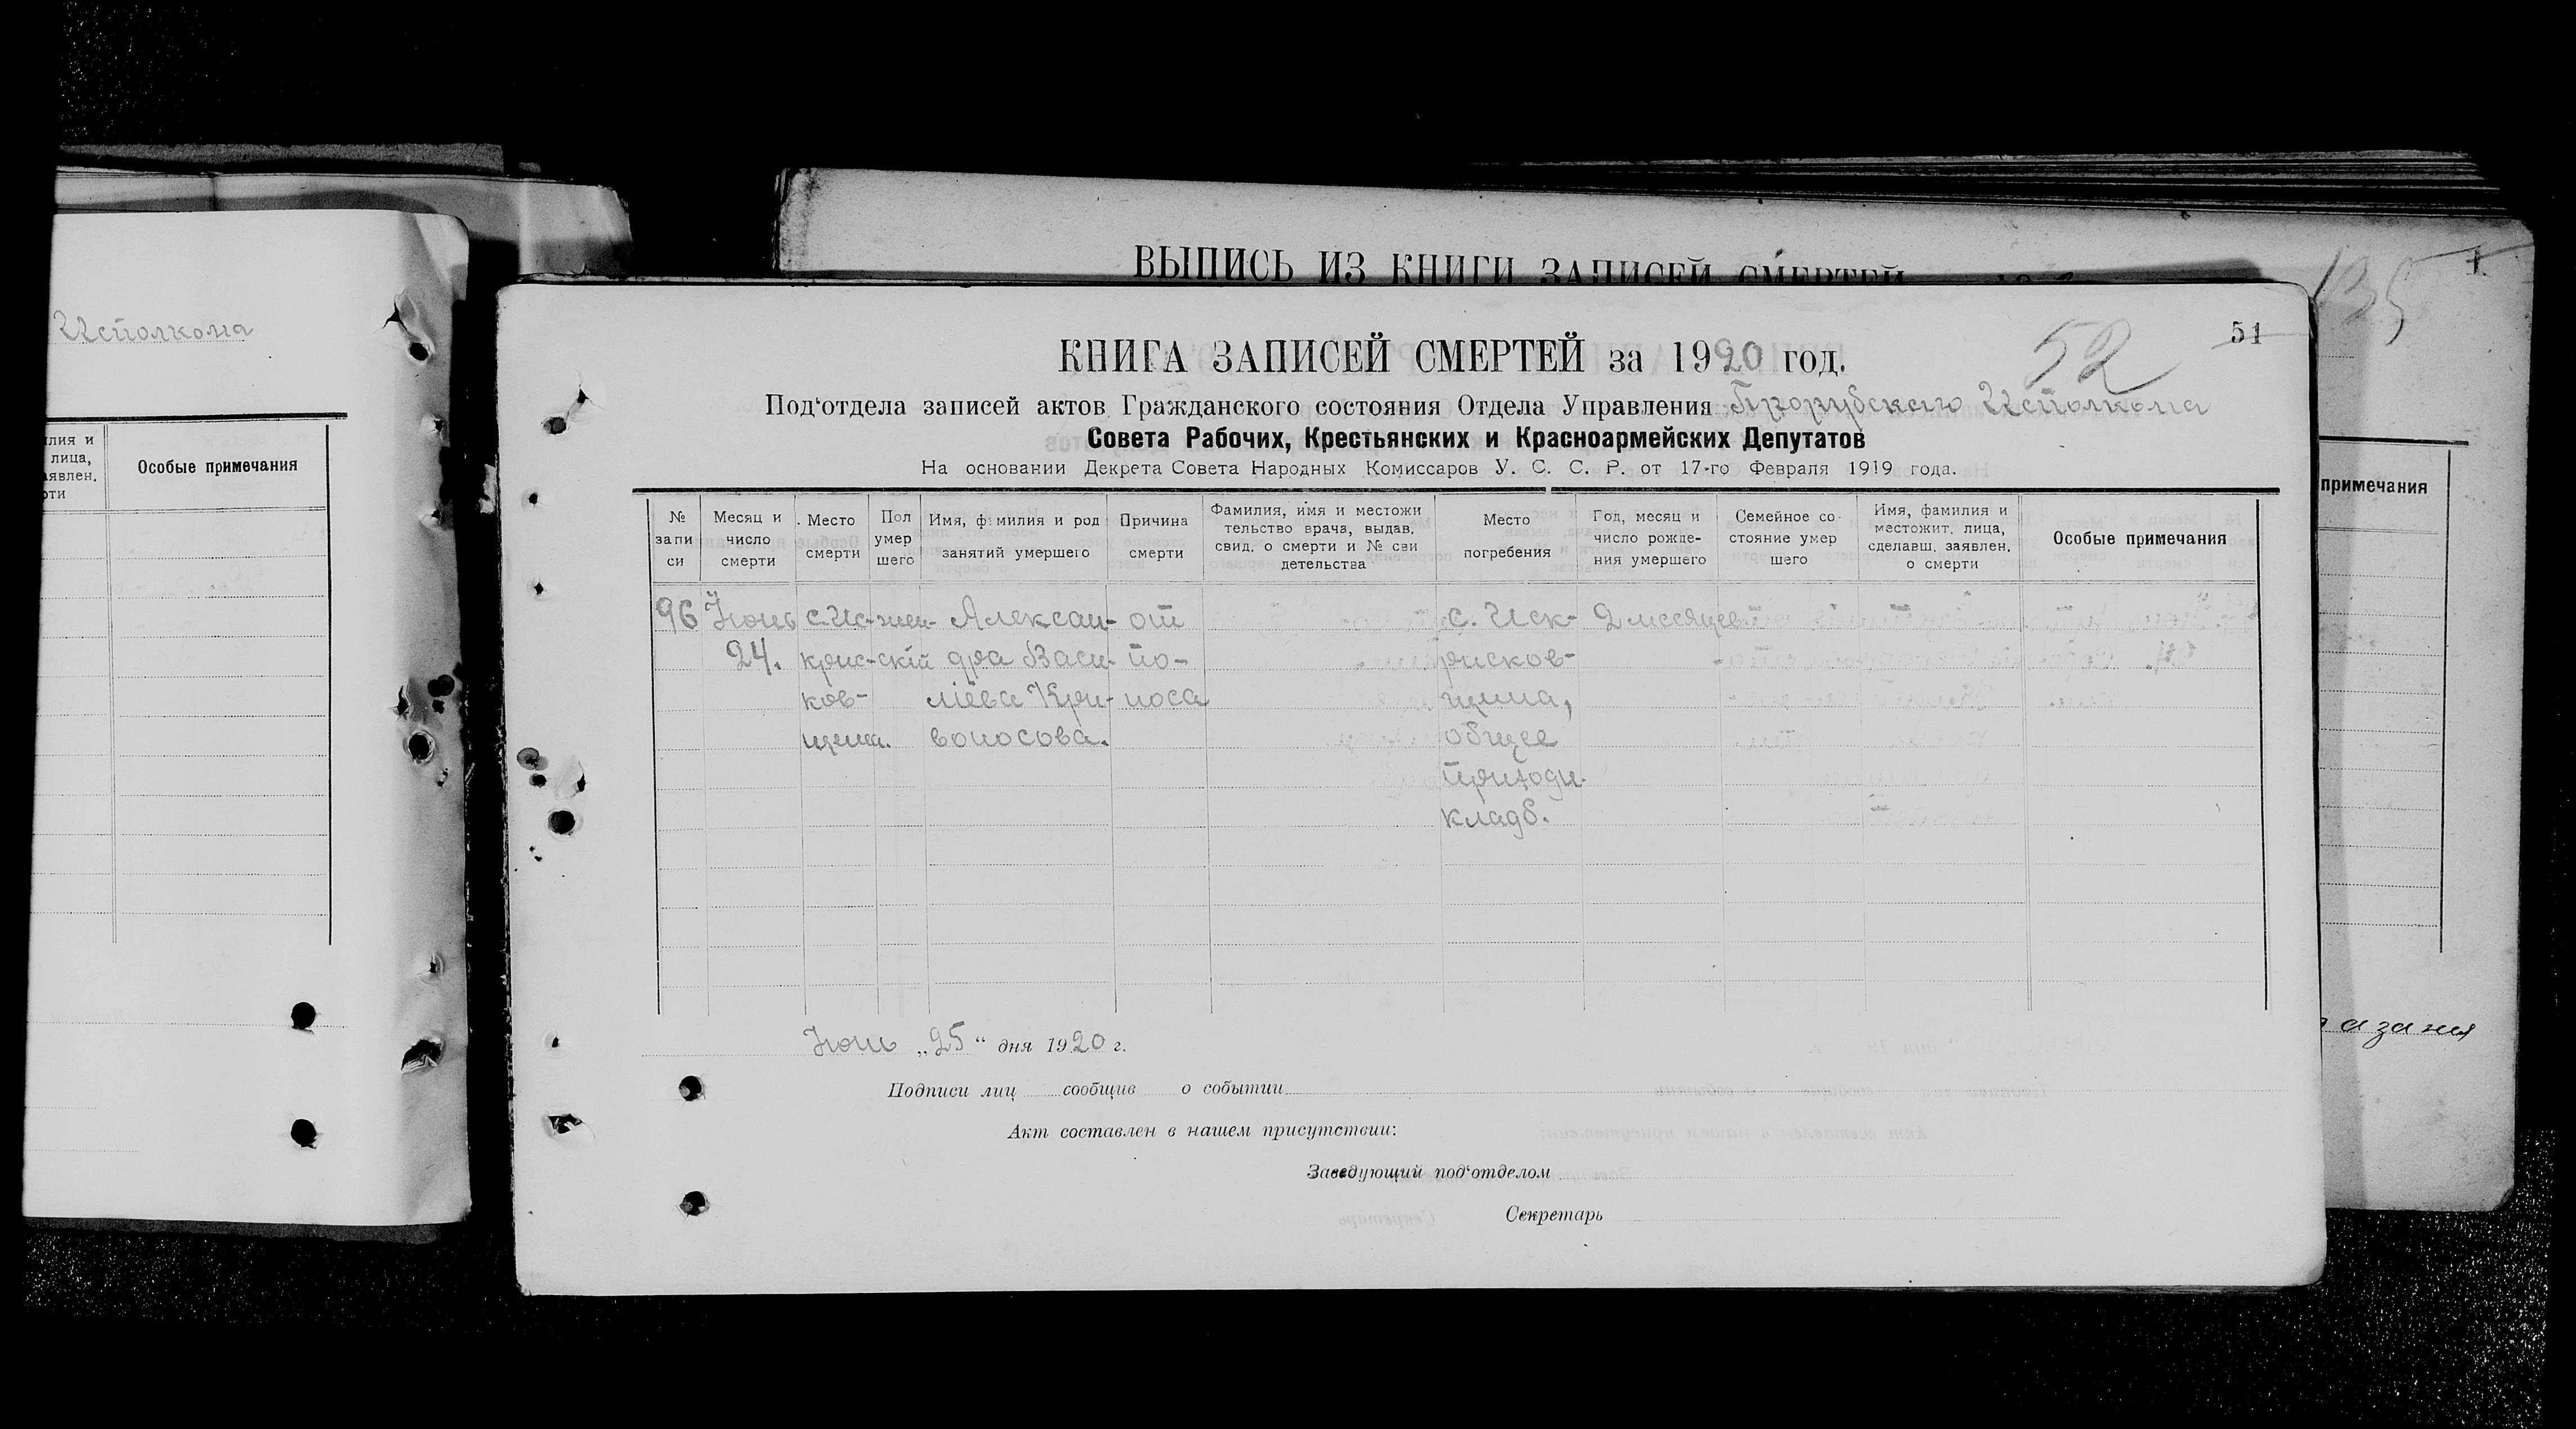 Исполкома
лия и
лица,
аявлен.
рти
Особые примечания
ВЫПИСЬ ИЗ КНИГИ ЗАПИСЕЙ СМЕРТЕЙ
135
1
примечания
азания
51
52
КНИГА ЗАПИСЕЙ СМЕРТЕЙ за 1920 год.
Под‘отдела записей актов Гражданского состояния Отдела Управления Прорубского Исполкома
Совета Рабочих, Крестьянских и Красноармейских Депутатов
На основании Декрета Совета Народных Комиссаров У. С. С. Р. от 17-го Февраля 1919 года.
№ запи си
Месяц и число смерти
Место смерти
Пол умер шего
Имя, фамилия и род занятий умершего
Причина смерти
Фамилия, имя и местожи тельство врача, выдав. свид. о смерти и № сви детельства
Место погребения
Год, месяц и число рожде- ния умершего
Семейное со- стояние умер шего
Имя, фамилия и местожит. лица, сделавш. заявлен. о смерти
Особые примечания
96 Июнь с. Ис- жен- Алексан- от с. Иск- 2 месяцев
24. крис- скій дра Васи- по- рисков-
ков- ліева Кри- носа щина,
щина. воносова. общее
приходн.
кладб.
Июнь „25“ дня 1920 г.
Подписи лиц сообщив о событии
Акт составлен в нашем присутствии:
Заведующий под‘отделом
Секретарь